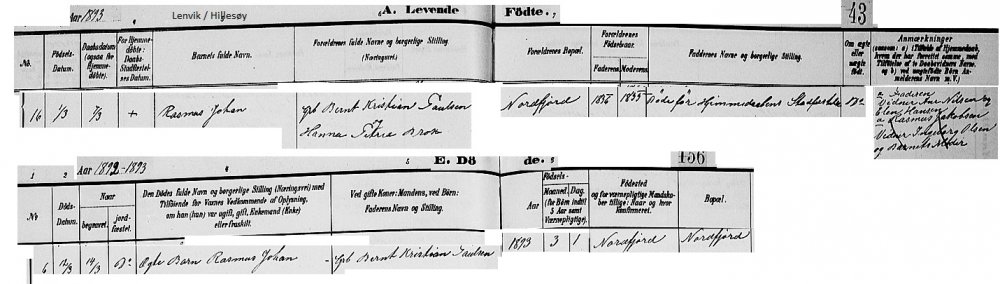 Aar 1893 Lenvik / Hillesøy A. Levende Fødte. 43
No. Fødsels-Datum. Daabsdatum (ogsaa for Hjemme-døbte). For Hjemme-døbte: Daabs-Stadfæstel-ses Datum. Barnets fulde Navn. Forældrenes fulde Navne og borgerlige Stilling. (Næringsvei) Forældrenes Bopæl. Forældrenes Fødselsaar. Faderens. Moderens. Faddernes Navne og borgerlige Stilling. Om ægte eller uægte født. Anmærkninger
16 1/3 7/3 + Rasmus Johan Gbr Bernt Kristian Paulsen Nordfjord Døde før Hjemmedaabens Stadfæstelse
Hanna
a Faderen
Vidner Ane Nilsen og
Elen Hansen
a Rasmus Jakobsen
Vidner Ingeborg Olsen
og Barnets Moder
Aar 1892-1893 E. Dø de. 156
1 2
No Døds-Datum. Naar begravet. jord-fæstet. Den Dødes fulde Navn og borgerlige Stilling (Næringsvei) med Tilføiende for Voxnes Vedkommende af Oplysning, om han (hun) var ugift, gift, Enkemand (Enke) eller fraskilt. Ved gifte Koner: Mandens, ved Børn: Faderens Navn og Stilling. Fødsels- Aar Maaned. Dag. (for Børn indtil 5 Aar samt Værnepligtige). Fødested og for værnepligtige Mandskaber tillige: Naar og hvor konfirmeret. Bopæl.
6 12/3 14/3 Do Ægte Barn Rasmus Johan - Gbr Bernt Kristian Paulsen 1893 3 1 Nordfjord Nordfjord